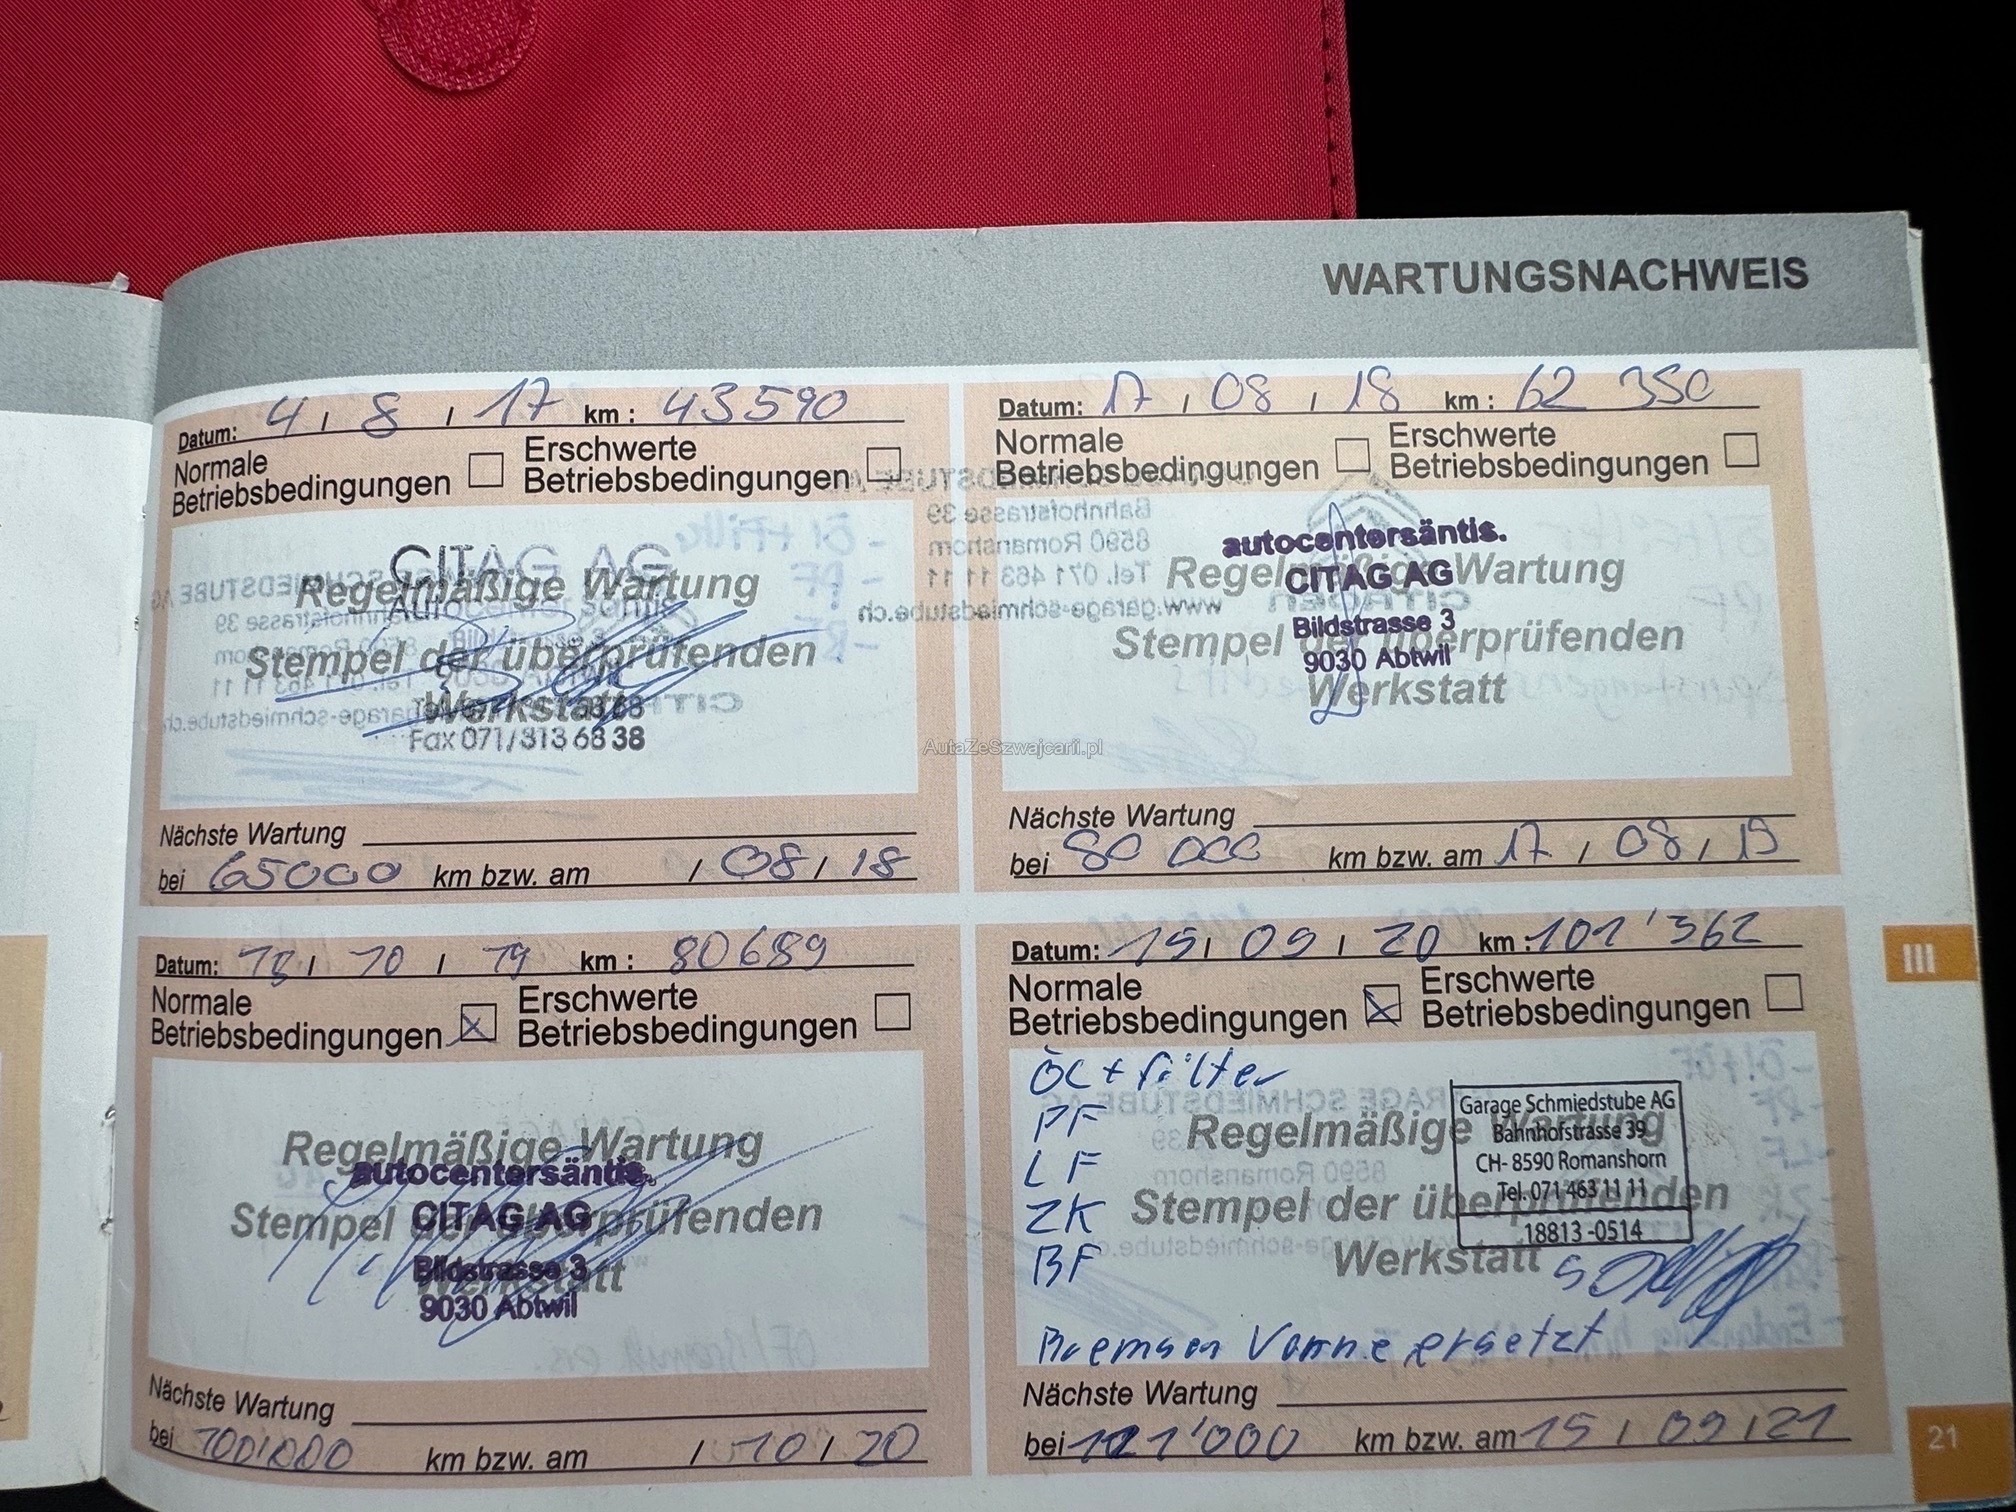 WARTUNGSNACHWEIS
Datum: 4, 8, 17 km: 43590
Normale
Betriebsbedingungen
Erschwerte
Betriebsbedingungen
CITAG AG
Regelmäßige Wartung
Stempel der überprüfenden
Werkstatt
Fax 071/313 68 38
Nächste Wartung
bei 65000 km bzw. am / 08 / 18
Datum: 17, 08, 18 km: 62 350
Normale
Betriebsbedingungen
Erschwerte
Betriebsbedingungen
autocentersäntis.
Regelmäßige Wartung
CITAG AG
Bildstrasse 3
Stempel der überprüfenden
9030 Abtwil
Werkstatt
AutaZeSzwajcarii.pl
Nächste Wartung
bei 80 000 km bzw. am 17 / 08 / 19
Datum: 10 / 19 km: 80689
Normale
Betriebsbedingungen
Erschwerte
Betriebsbedingungen
Regelmäßige Wartung
autocentersäntis.
Stempel der überprüfenden
CITAG AG
Bildstrasse 3
Werkstatt
9030 Abtwil
Nächste Wartung
bei 100'000 km bzw. am / 10 / 20
Datum: 15, 09, 20 km: 101'362
Normale
Betriebsbedingungen
Erschwerte
Betriebsbedingungen
Öl + filter
PF
LF
ZK
BF
Regelmäßige Wartung
Stempel der überprüfenden
Werkstatt
Garage Schmiedstube AG
Bahnhofstrasse 39
CH- 8590 Romanshorn
Tel. 071 463 11 11
18813 -0514
Bremsen Vorne ersetzt
Nächste Wartung
bei 121'000 km bzw. am 15 / 09 / 21
III
21